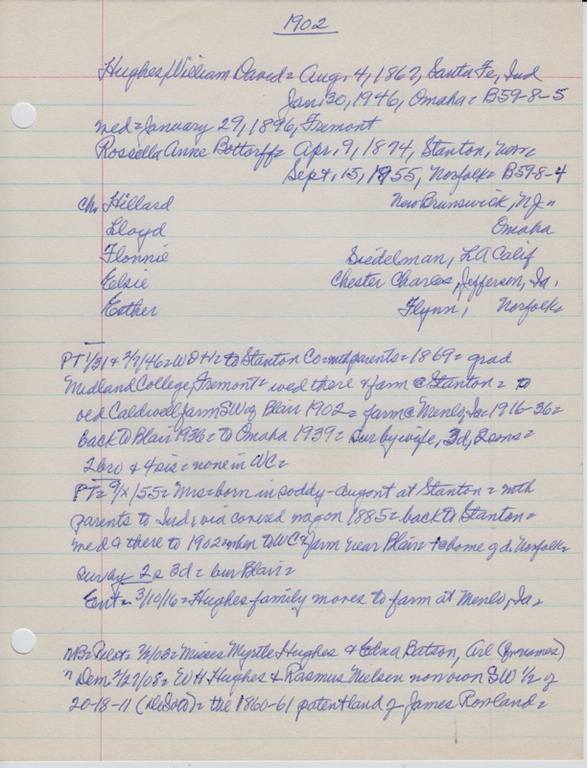 1902
Hughes, William David = Aug. 4, 1867, Santa Fe, Ind
Jan. 30, 1946, Omaha = B59-8-5
med = January 29, 1896, Fremont
Rossella Anne Bottorff = Apr. 9, 1874, Stanton,
Sept. 15, 1955, Norfolk = B59-8-4
Ch. Hillard New Brunswick, NJ =
Lloyd Omaha
Flonnie Siedelman, LA Calif
Elsie Chester Charles, Jefferson, Ia.
Esther Flynn, Norfolk =
PT 1/31 & 2/7/46 = WDH = to Stanton Co = with parents = 1869 = grad
Midland College, Fremont = wed there & farm @ Stanton = to
old Caldwell farm SW of Blair 1902 = farm @ Menlo, Ia = 1916-36 =
back to Blair 1936 = to Omaha 1939 = sur by wife, 3d, 2 sons =
2 bro & 4 sis = none in WC =
PT = 9/x/55 = Mrs = born in soddy at Stanton = with
parents to Ind, via covered wagon 1885 = back to Stanton =
med & there to 1902 = when to WC = farm near Blair = home gd. Norfolk =
surv by 2s 3d = bur Blair =
Ent = 3/10/16 = Hughes family moves to farm at Menlo, Ia =
NB = Pilot = Misses Myrtle Hughes & Edna Batson, Arl
" Dem 2/27/08 = WH Hughes & Rasmus Nielsen now own SW 1/2 of
20-18-11 (DeSoto) = the 1860-61 patent land of James Rowland =